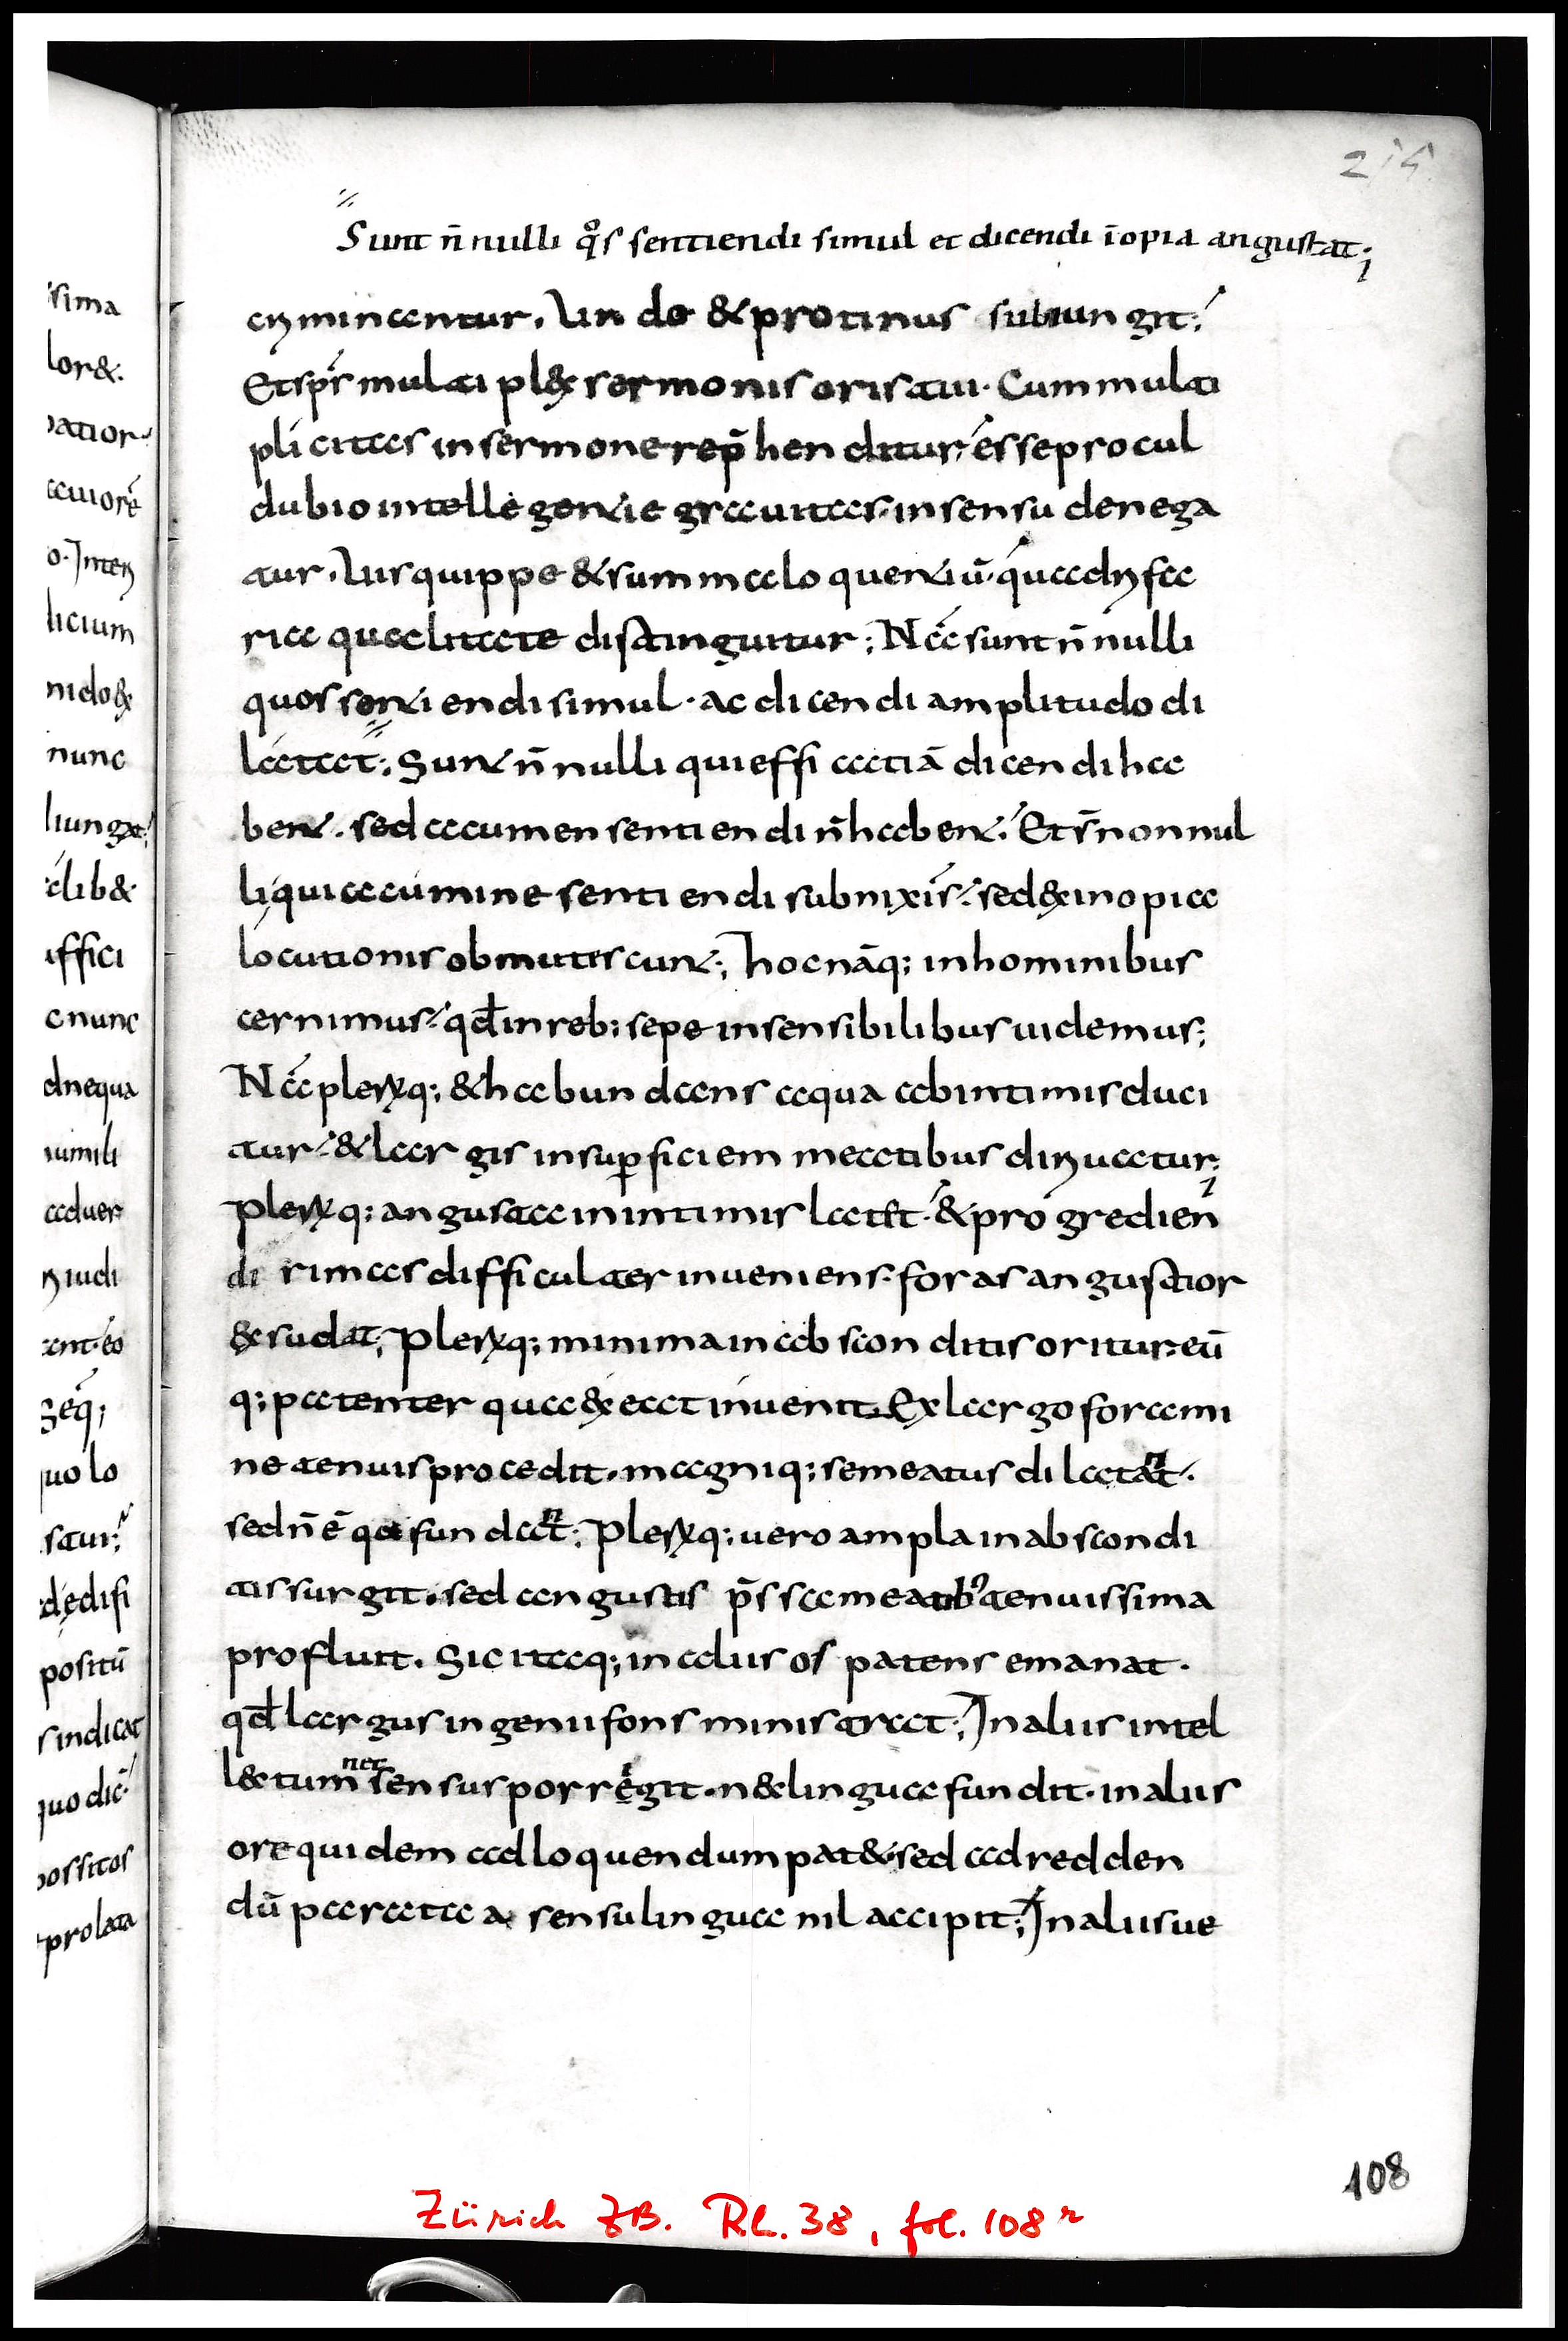 214
Sunt n̄nulli qͦs sentiendi simul et dicendi īopia angustat;
criminantur. Unde & protinus subiungit;
Et sp̄s multiplex sermonis oris tui. Cum multi
plicitas in sermone rep̄henditur. esse procul
dubio intellegentie grauitas. in sensu denega
tur. Uis quippe & summa loquentiū. quadrifa
ria qualitate distinguitur; Nā sunt n̄nulli
quos sentiendi simul. ac dicendi amplitudo di
latat; Sunt n̄nulli qui efficatiā dicendi ha
bent. sed acumen sentiendi n̄ habent. Et s̄ nonnul
li qui acumine sentiendi subnixi s̄. sed ex inopia
locutionis obmutescunt; hoc nāq; in hominibus
cernimus. qđ in reb; sepe insensibilibus uidemus;
Nā plerūq; & habundans aqua ab intimis duci
tur. & largis in sup̱ficiem meatibus diriuatur;
plerūq; angusta in intimis latet. & progredien
di rimas difficulter inueniens. foras angustior
exsudat; plerūq; minima in abscon ditis oritur. cū
q; patenter qua exeat inuenit. Ex largo forami
ne tenuis procedit. magniq; se meatus dilatant.
sed n̄ ē qđ fundant; plerūq; uero ampla in abscondi
tis surgit. sed angustis p̄ssa meatib᾿ tenuissima
profluit. Sic itaq; in aliis os patens emanat.
qđ largus ingenii fons ministrat; In aliis intel
lectum nec sensus porrigit. n& lingua fundit. in aliis
ore quidem ad loquendum pat&. sed ad redden
dū parata a sensu lingua nil accipit; In aliis ue
108
Zürich ZB. Rh. 38, fol. 108r
sima
lor&.
atiorē
o. Inter
licium
nunc
lib&
iffici
c nunc
dnequa
umili
aduer
Seq;
uo lo
positū
s indicat
prolata